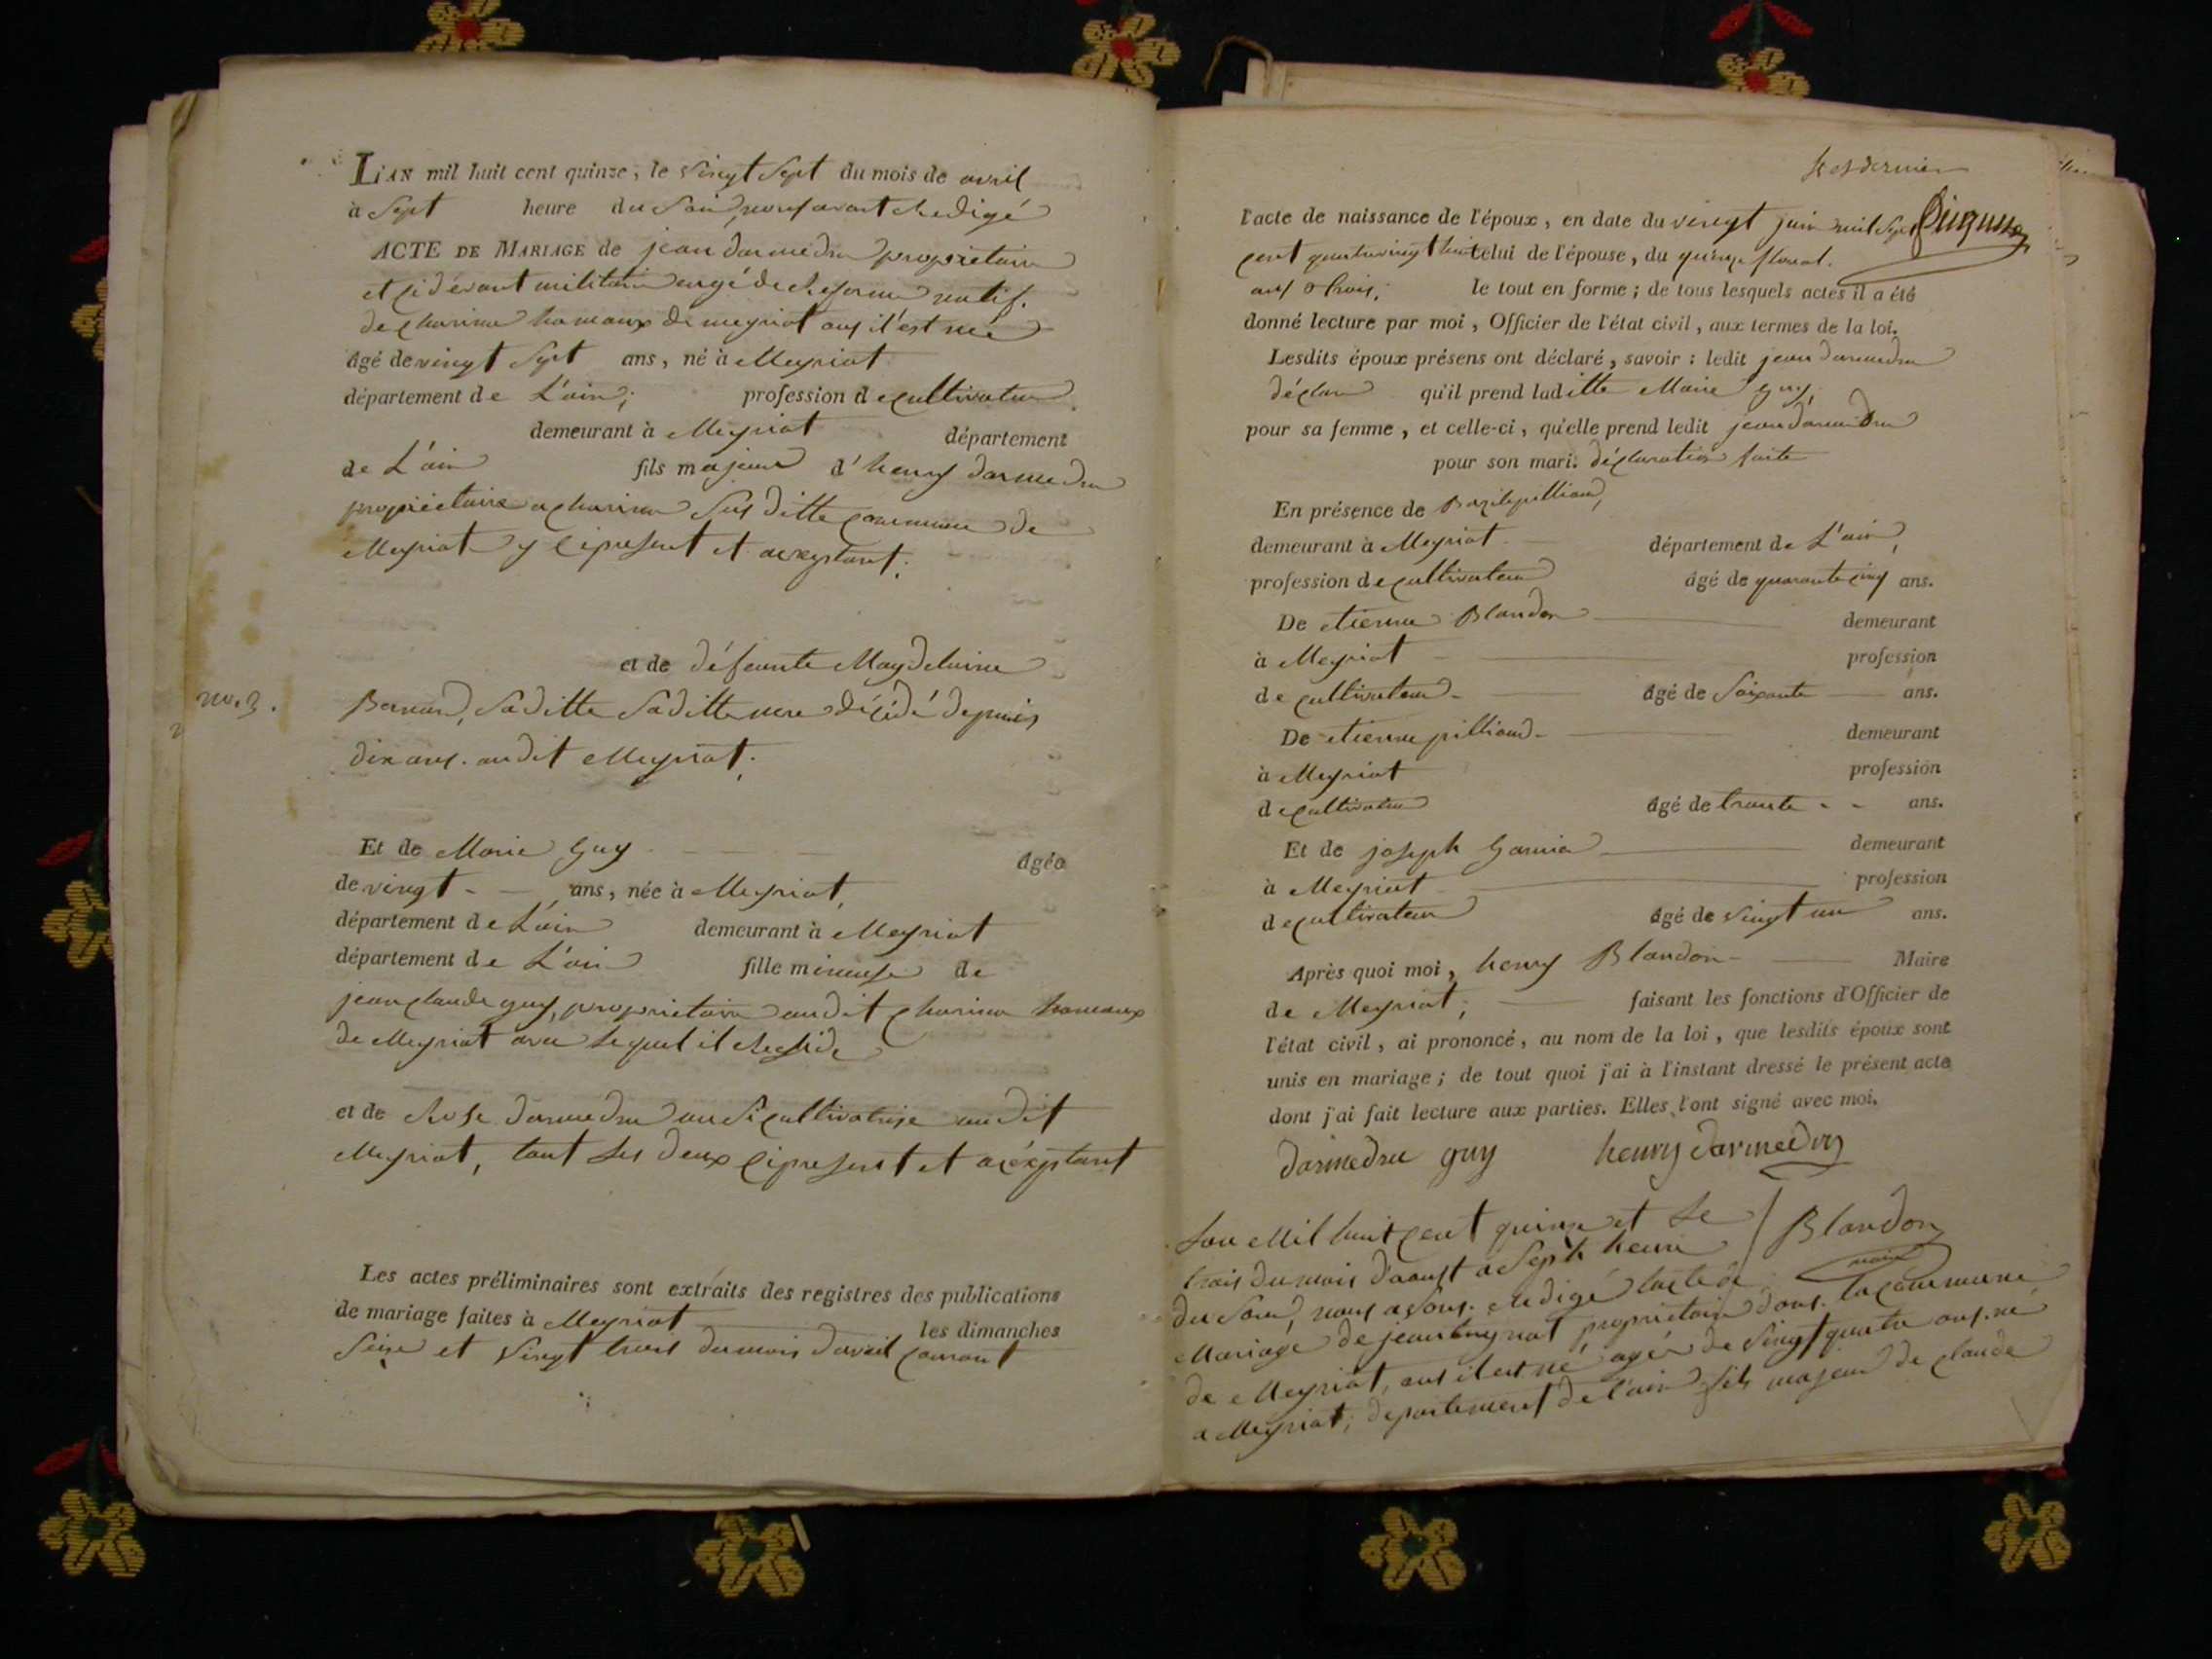 L'AN mil huit cent quinze, le vingt sept du mois de avril
à sept heure du soir, nous avont redigé
ACTE DE MARIAGE de jean darmedru propriétaire
et cidévant militaire de reforme natif
de charinas hameaux de meyriat ous il est né
âgé de vingt sept ans, né à Meyriat
département de L'ain; profession de cultivateur
demeurant à Meyriat département
de L'ain fils majeur d'henry darmedru
propriétaire a susditte commune de
Meyriat y cipresent et acceptant;
et de défeunte Magdelaine
no. 3.
Bernard, saditte saditte mere décédé depuis
dix ans. audit Meyriat;
Et de Marie Guy âgée
de vingt - ans, née à Meyriat,
département de L'ain demeurant à Meyriat
département de L'ain fille mineuse de
jean claude guy, propriétaire audit hameaux
de Meyriat avec lequel il reside
et de Rose darmedru ausi cultivatrise audit
Meyriat, tout les deux cipresent et acceptant
Les actes préliminaires sont extraits des registres des publications
de mariage faites à Meyriat les dimanches
seize et vingt trois du mois davril courant
l'acte de naissance de l'époux, en date du vingt juin mil sept
cent quatrevingt huit celui de l'épouse, du quinze floréal.
ans trois; le tout en forme; de tous lesquels actes il a été
donné lecture par moi, Officier de l'état civil, aux termes de la loi.
Lesdits époux présens ont déclaré, savoir: ledit jean darmedru
déclare qu'il prend laditte Marie guy,
pour sa femme, et celle-ci, qu'elle prend ledit jean darmedru
pour son mari. déclaration faite
En présence de Bazile pilliard,
demeurant à Meyriat département de L'ain,
profession de cultivateur âgé de quarante cinq ans.
De etienne Blandon demeurant
à Meyriat profession
de cultivateur - âgé de soixante ans.
De etienne pilliard - demeurant
à Meyriat profession
de cultivateur âgé de trante - - ans.
Et de joseph demeurant
à Meyriat profession
de cultivateur âgé de vingt un ans.
Après quoi moi, henry Blandon - Maire
de Meyriat; faisant les fonctions d'Officier de
l'état civil, ai prononcé, au nom de la loi, que lesdits époux sont
unis en mariage; de tout quoi j'ai à l'instant dressé le présent acte
dont j'ai fait lecture aux parties. Elles l'ont signé avec moi.
darmedru guy henry darmedru
Blandon
maire
Lan Mil huit cent quinze et le
trois du mois d'aoust a sept heure
du soir, nous avons redigé lacte de
Mariage de jean propriétaire dans la commune
de Meyriat, ous il est né agér de vingt quatre ans. né
a Meyriat; departement de l'ain fils majeur de claude